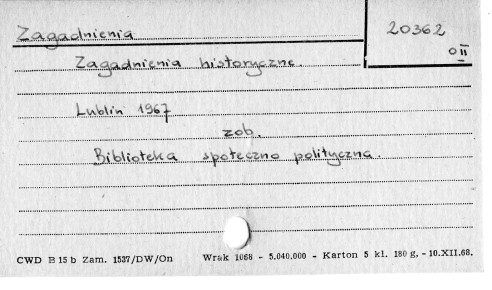 Zagadnienia
20362
O II
Zagadnienia historyczne.
Lublin 1967
zob.
Biblioteka społeczno polityczna.
CWD B 15 b Zam. 1537/DW/On Wrak 1068 - 5.040.000 - Karton 5 kl. 180 g. - 10.XII.68.